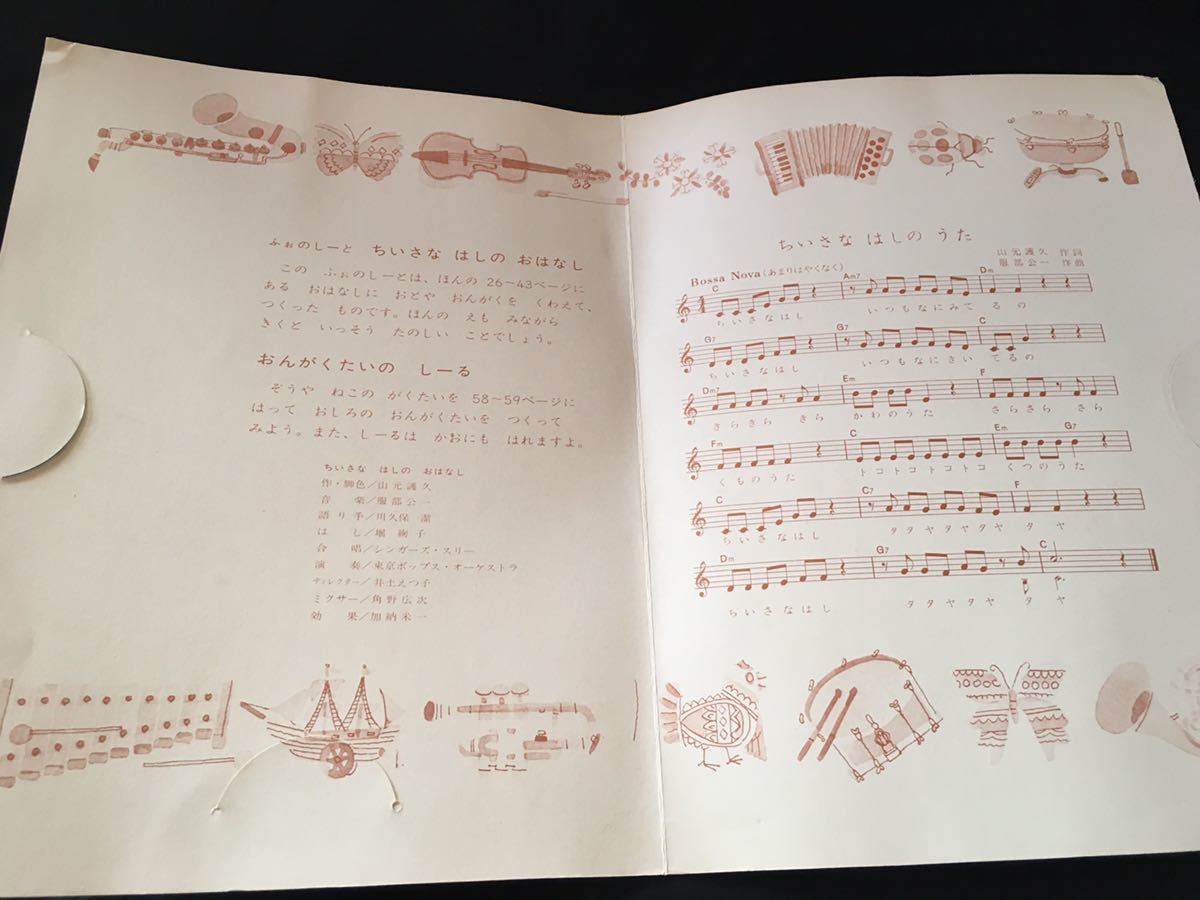 ふぉのしーと ちいさな はしの おはなし
この ふぉのしーとは、ほんの 26〜43ページに
ある おはなしに おとや おんがくを くわえて、
つくった ものです。ほんの えも みながら
きくと いっそう たのしい ことでしょう。
おんがくたいの しーる
ぞうや ねこの がくたいを 58〜59ページに
はって おしろの おんがくたいを つくって
みよう。また、しーるは かおにも はれますよ。
ちいさな はしの おはなし
作・脚色/山元護久
音 楽/服部公一
語り手/川久保 潔
は し/堀 絢子
合 唱/シンガーズ・スリー
演 奏/東京ポップス・オーケストラ
ディレクター/井土えつ子
ミクサー/角野広次
効 果/加納米一
ちいさな はしの うた
山元護久 作詞
服部公一 作曲
Bossa Nova(あまりはやくなく)
C Am7 Dm
ちいさなはし いつもなにみて るの
G7 C
ちいさなはし いつもなにきい てるの
Dm7 Em F
きらきら きら かわのうた さらさら さら
Fm C Em G7
くものうた トコトコトコトコ くつのうた
C C7 F
ちいさなはし タタヤタヤタヤ タヤ
Dm G7 C
ちいさなはし タタヤタヤ タヤ